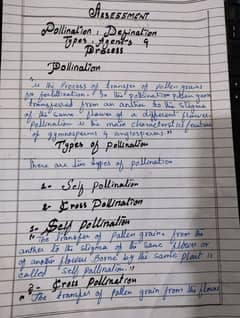 ASSESSMENT
Pollination : Defination
Types, Agents &
Process
Pollination
"is the Process of transfer of Pollen grains
In the Pollination Pollen grains
transferred from an anther to the stigma
of the same flower or a different flower.
Pollination is the main characteristic feature
of gymnosperms & angiosperms."
Types of Pollination
There are two types of pollination
1- Self Pollination
2- Cross Pollination
1- Self Pollination
"The transfer of Pollen grains from the
anther to the stigma of the same flower or
of another flower borne by the same plant is
called "self pollination."
2- Cross Pollination
"The transfer of Pollen grain from the flower